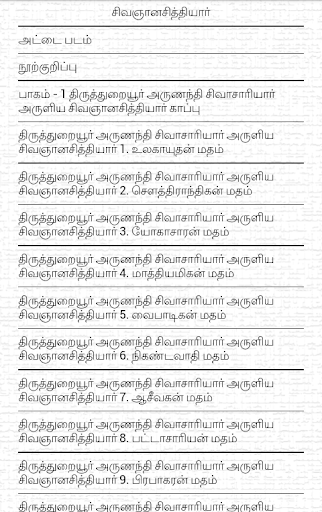 சிவஞானசித்தியார்
அட்டை படம்
நூற்குறிப்பு
பாகம் - 1 திருத்துறையூர் அருணந்தி சிவாசாரியார்
அருளிய சிவஞானசித்தியார் காப்பு
திருத்துறையூர் அருணந்தி சிவாசாரியார் அருளிய
சிவஞானசித்தியார் 1. உலகாயுதன் மதம்
திருத்துறையூர் அருணந்தி சிவாசாரியார் அருளிய
சிவஞானசித்தியார் 2. சௌத்திராந்திகன் மதம்
திருத்துறையூர் அருணந்தி சிவாசாரியார் அருளிய
சிவஞானசித்தியார் 3. யோகாசாரன் மதம்
திருத்துறையூர் அருணந்தி சிவாசாரியார் அருளிய
சிவஞானசித்தியார் 4. மாத்தியமிகன் மதம்
திருத்துறையூர் அருணந்தி சிவாசாரியார் அருளிய
சிவஞானசித்தியார் 5. வைபாடிகன் மதம்
திருத்துறையூர் அருணந்தி சிவாசாரியார் அருளிய
சிவஞானசித்தியார் 6. நிகண்டவாதி மதம்
திருத்துறையூர் அருணந்தி சிவாசாரியார் அருளிய
சிவஞானசித்தியார் 7. ஆசீவகன் மதம்
திருத்துறையூர் அருணந்தி சிவாசாரியார் அருளிய
சிவஞானசித்தியார் 8. பட்டாசாரியன் மதம்
திருத்துறையூர் அருணந்தி சிவாசாரியார் அருளிய
சிவஞானசித்தியார் 9. பிரபாகரன் மதம்
திருத்துறையூர் அருணந்தி சிவாசாரியார் அருளிய